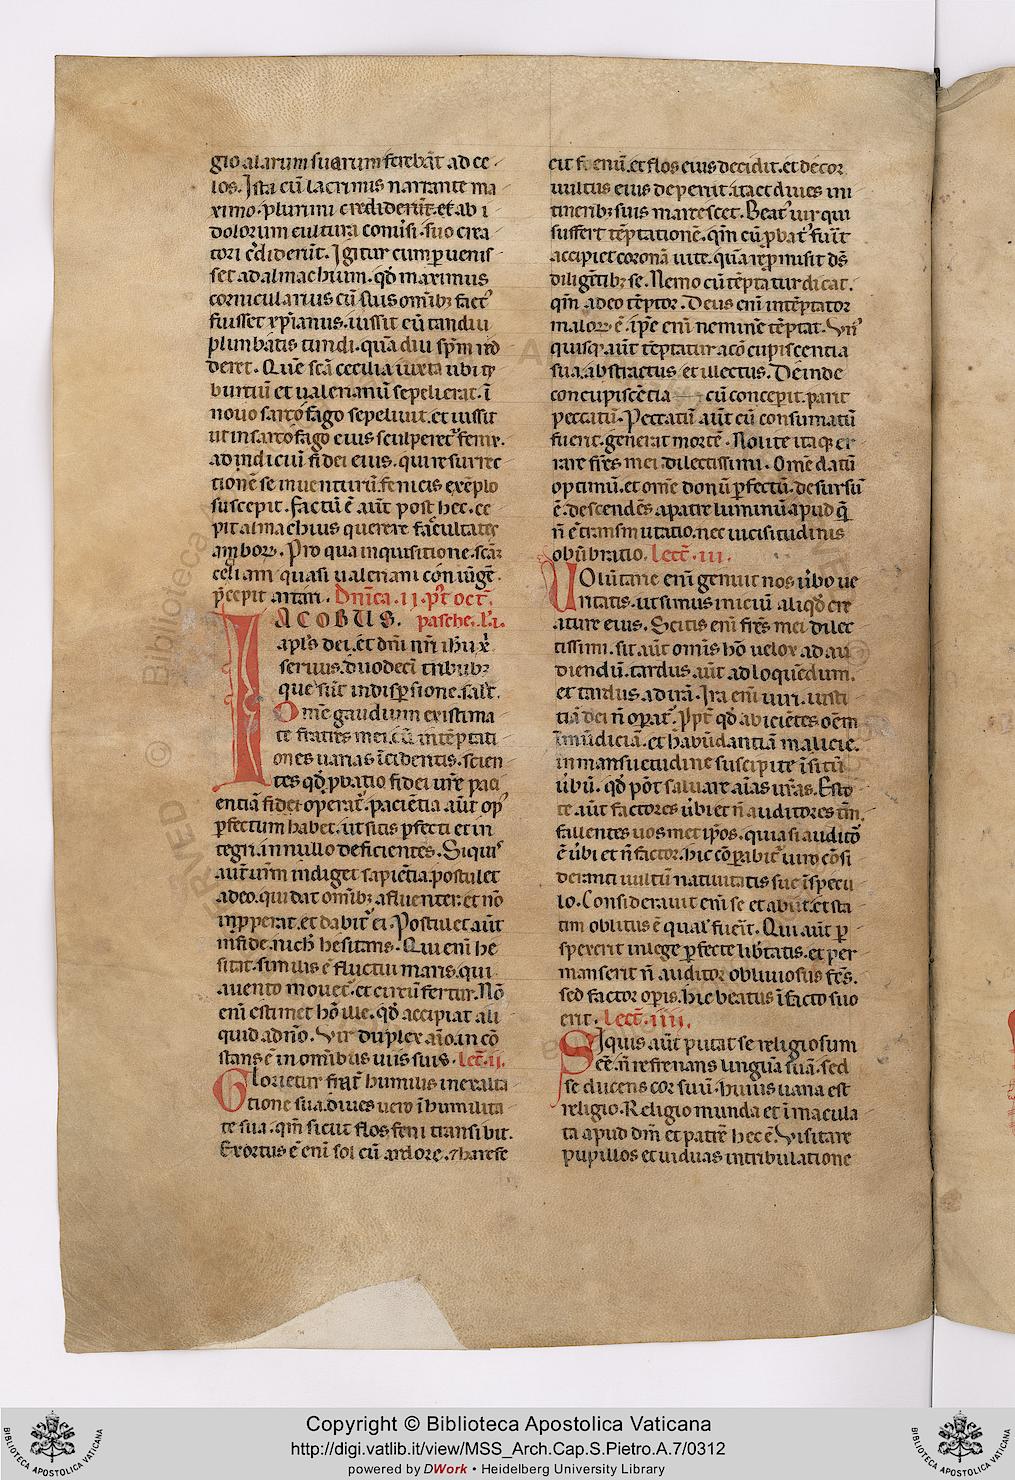 gio alarum suarum ferebāt ad ce-
los. Ista cū lacrimis narrante ma-
ximo. plurimi crediderūt. et ab i-
dolorum cultura conūsi. suo crea-
tori c̄diderūt. Igitur cum puenis-
set ad almachium. qd maximus
cornicularius cū suis omib; fact᾽
fuisset xp̄ianus. iussit eū tandiu
plunbatis tundi. quā diu sp̄m red
deret. Quē scā cecilia iuxta ubi ty
burtiū et ualerianū sepelierat. ī
nouo sarcofago sepeliuit. et iussit
ut in sarcofago eius sculperet᾽ fenix.
ad indiciū fidei eius. qui resurrec-
tionē se inuenturū fenicis exēplo
suscepit. Factū ē aūt post hec. ce-
pit almachius querere facultates
amborꝝ. Pro qua inquisitione. scāꝫ
ceciliam quasi ualeriani coniūgē.
p̄cepit artari. Dn̄ica .II. p᾽t oct̄.
IACOBUS. pasche. l᾽ i.
apl᾽s dei. et dn̄i nr̄i ihu xp̄i
seruus. duodecī tribubꝫ
que sūt in dispersione. salt̄.
Om̄e gaudium existima-
te fratres mei. cū in tēptati-
ones uarias īcidentis. scien-
tes qd pbatio fidei ur̄e paci-
entiā fidei operat᾽. paciētia aūt op᾽
pfectum habet. ut sitis pfecti et in
tegri. in nullo deficientes. Siquis
aūt ur̄m indiget sapiētia. postulet
a deo. qui dat omībꝫ afluenter. et nō
inpperat. et dabit᾽ ei. Postulet aūt
in fide. nich hesitans. Qui enī he-
sitat. similis ē fluctui maris. qui
a uento mouet᾽. et circūfertur. Nō
enī estimet hō ille. qd accipiat ali-
quid a dn̄o. Vir duplex aīo. in cō
stans ē in omībus uiis suis. lect̄. ii.
Glorietur frat̄ humilis in exalta-
tione sua. diues uero ī humilita-
te sua. qm̄ sicut flos feni transibit.
Exortus ē enī sol cū ardore. ⁊ harefe
cit foenū. et flos eius decidit. et decor
uultus eius deperiit. ita et diues in i-
tineribꝫ suis marcescet. Beat᾽ uir qui
suffert tēptationē. qm̄ cū pbat᾽ fuīt
accipiet coronā uite. quā repromisit ds̄
diligētibꝫ se. Nemo cū tēptatur dicat.
qm̄ a deo tēptor. Deus enī intēptator
malorꝝ ē. ip̄e enī neminē tēptat. Vn᾽
quisqꝫ aūt tēptatur a cōcupiscentia
sua. abstractus et illectus. Deinde
concupiscētia cū concepit. parit
peccatū. Peccatū aūt cū consumatū
fuerit. generat mortē. Nolite itaqꝫ er-
rare frēs mei dilectissimi. Om̄e datū
optimū. et om̄e donū pfectū. desursū
ē. descendēs a patre luminū. apud quē
n̄ ē transmutatio. nec uicisitudinis
obūbratio. lect̄. iii.
Uolūtarie enī genuit nos ūbo ue-
ritatis. ut simus iniciū aliqd cre-
ature eius. Scitis enī frēs mei dilec-
tissimi. sit aūt omīs hō uelox ad au-
diendū. tardus aūt ad loquēdum.
et tardus ad irā. Ira enī uiri. iusti-
tiā dei n̄ opat᾽. Ppt̄ qd abiciētes oēm
īmūdiciā. et habūdantiā malicie.
in mansuetudine suscipite īsitū
ūbū. qd pōt saluare aīas ur̄as. Esto-
te aūt factores ūbi et n̄ auditores tm̄.
fallentes uosmet ip̄os. quia si auditō
ē ūbi et n̄ factor. hic cōparabit᾽ uiro cōsi-
deranti uultū natiuitatis sue ī specu-
lo. Considerauit enī se et abiit. et sta-
tim oblitus ē qual᾽ fuerit. Qui aūt p-
spexerit in lege pfecte libtatis. et per-
manserit n̄ auditor obliuiosus fc̄s.
sed factor opis. hic beatus ī facto suo
erit. lect̄. iiii.
Siquis aūt putat se religiosum
eē. n̄ refrenans linguā suā. sed
seducens cor suū. huius uana est
religio. Religio munda et īmacula-
ta apud dm̄ et patrē hec ē. Visitare
pupillos et uiduas in tribulatione
Copyright © Biblioteca Apostolica Vaticana
http://digi.vatlib.it/view/MSS_Arch.Cap.S.Pietro.A.7/0312
powered by DWork • Heidelberg University Library
BIBLIOTECA APOSTOLICA VATICANA
BIBLIOTECA APOSTOLICA VATICANA